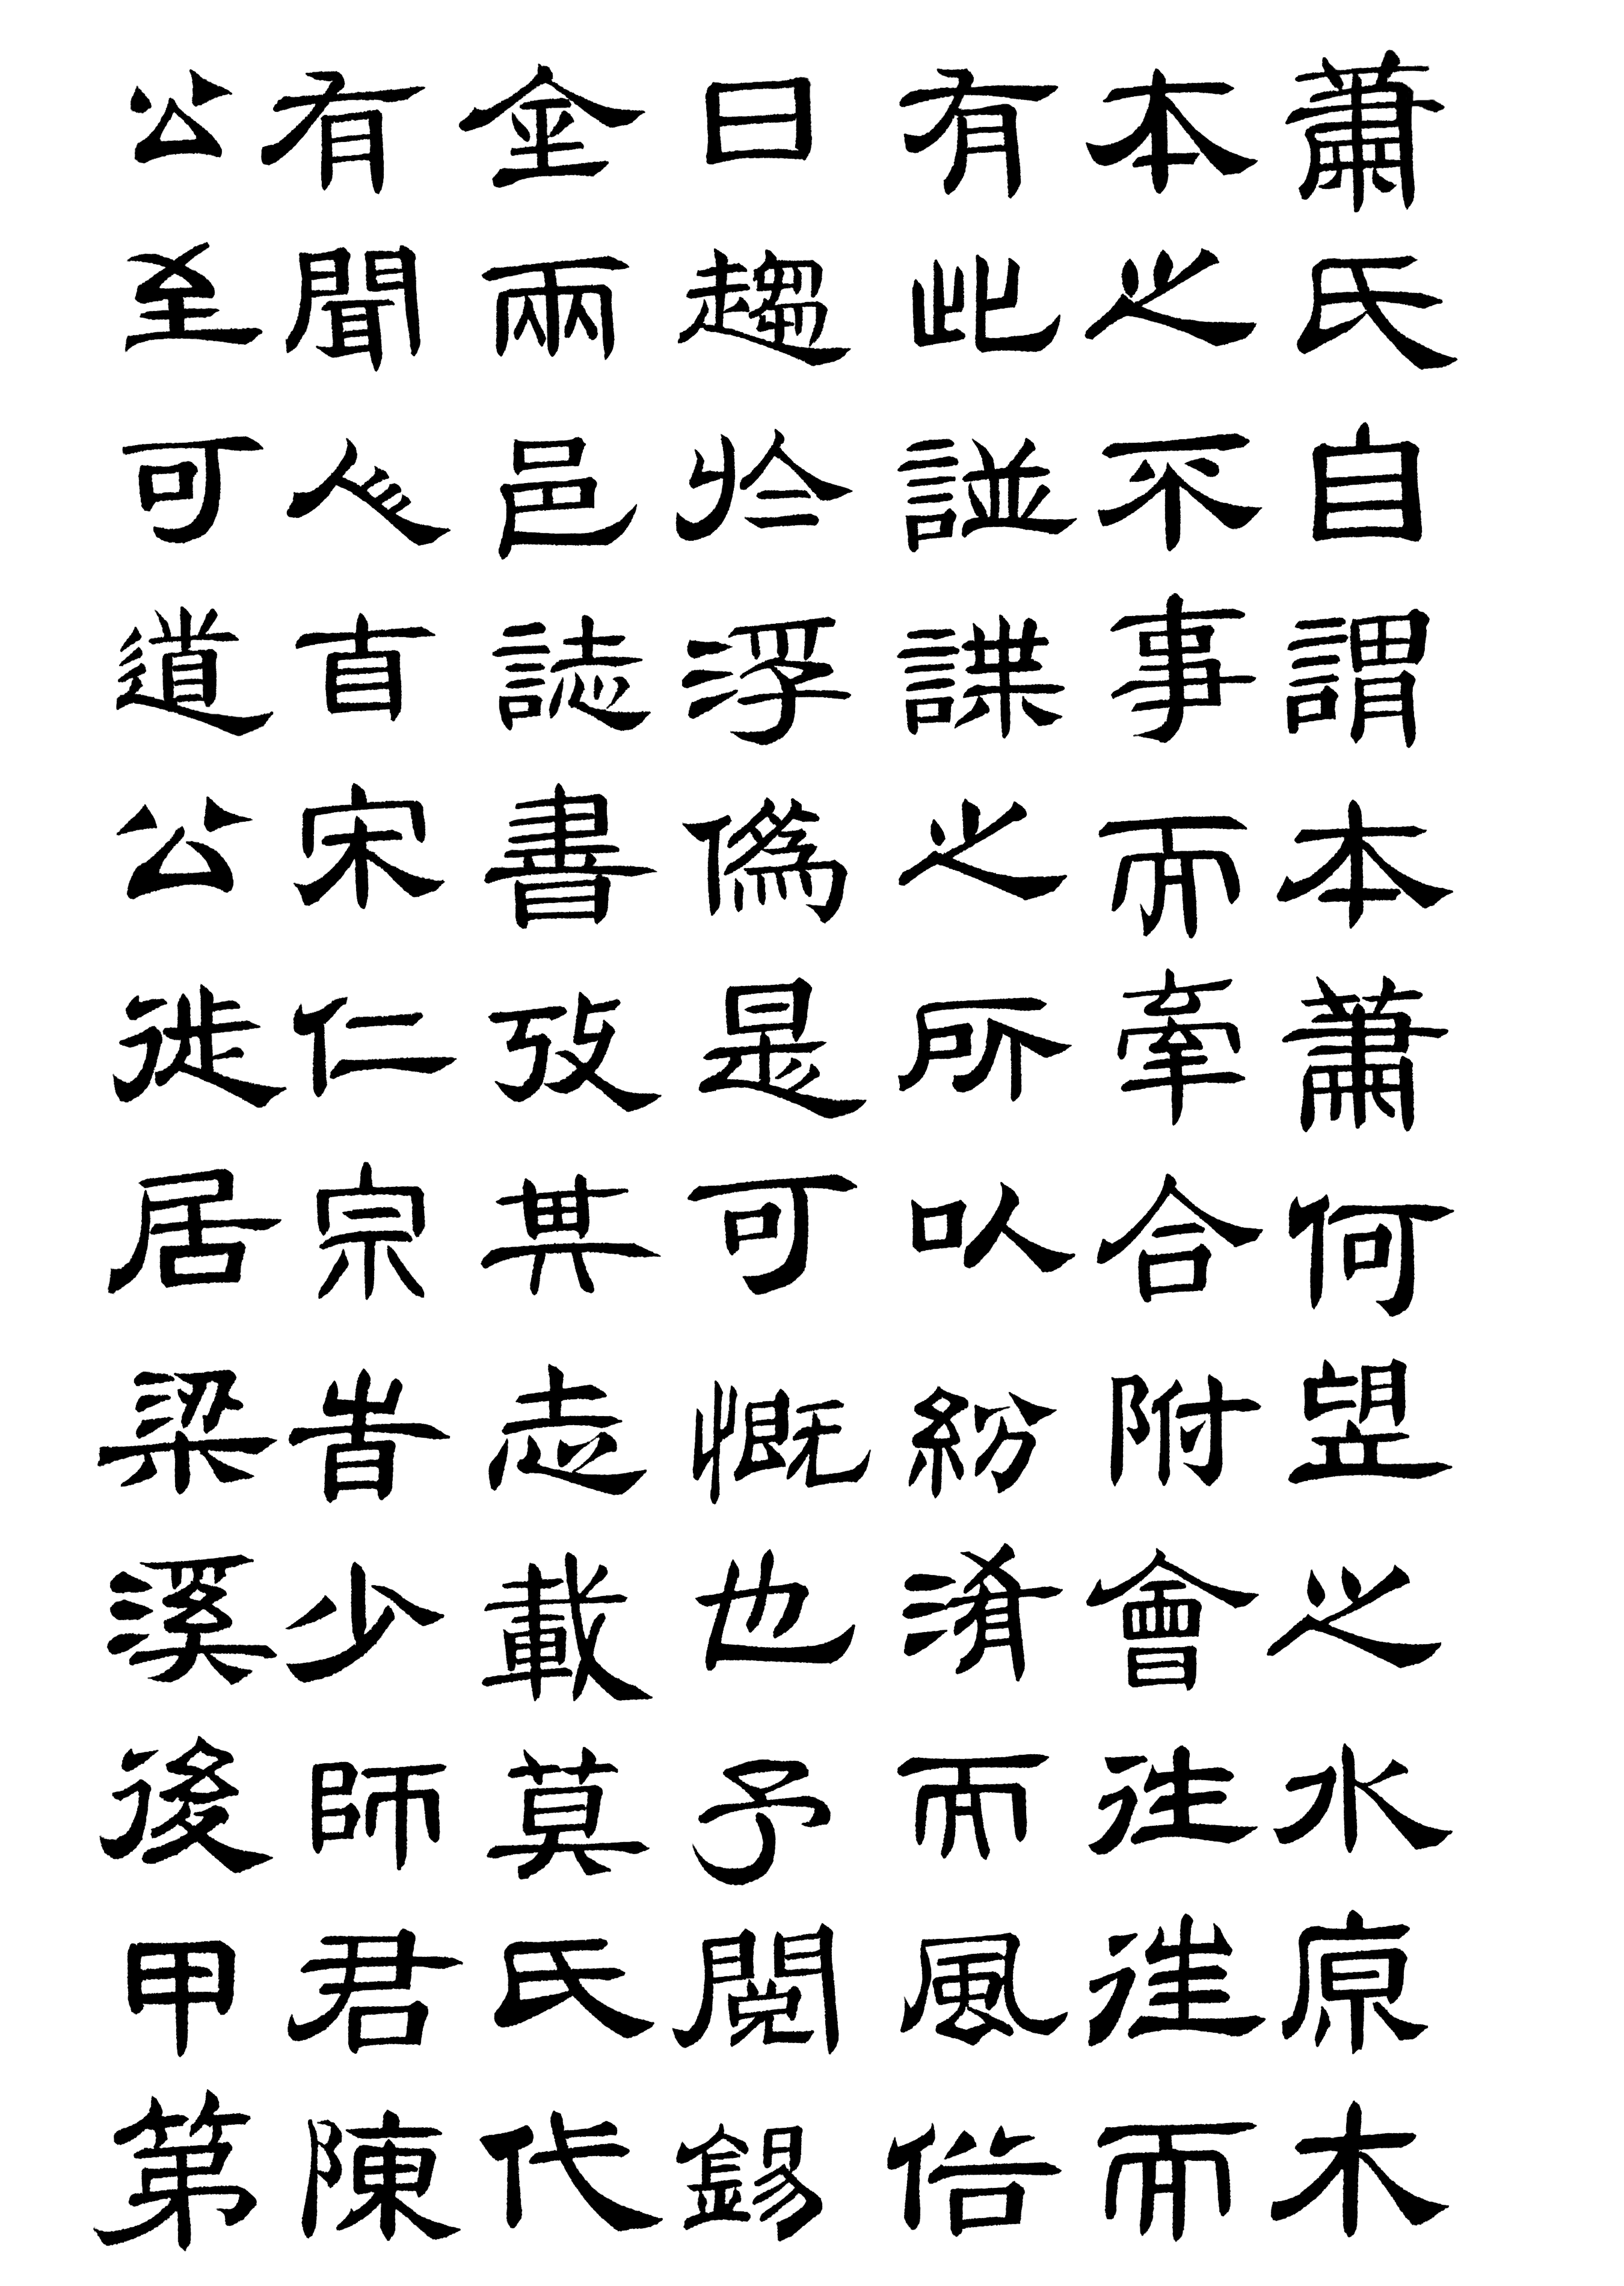 蕭氏自謂本蕭何望之水原木
本之不事而牽合附會往往而
有此譜諜之所以紛淆而風俗
日趨於浮偽是可慨也予閱錫
金兩邑誌書攷其志載莫氏代
有聞人首宋仁宗旹少師君陳
公至可道公徙居梁溪後甲第